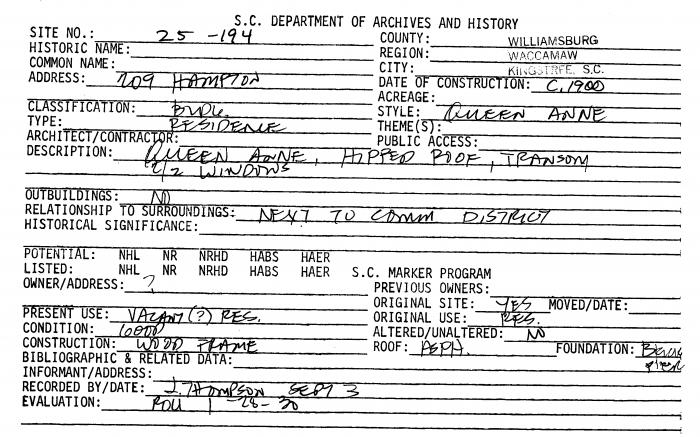 S.C. DEPARTMENT OF ARCHIVES AND HISTORY
SITE NO.: 25 -194 COUNTY: WILLIAMSBURG
HISTORIC NAME: REGION: WACCAMAW
COMMON NAME: CITY: KINGSTREE, S.C.
ADDRESS: 709 HAMPTON DATE OF CONSTRUCTION: C. 1900
ACREAGE:
CLASSIFICATION: BLDG. STYLE: QUEEN ANNE
TYPE: RESIDENCE THEME(S):
ARCHITECT/CONTRACTOR: PUBLIC ACCESS:
DESCRIPTION: QUEEN ANNE, HIPPED ROOF, TRANSOM
2/2 WINDOWS
OUTBUILDINGS: NO
RELATIONSHIP TO SURROUNDINGS: NEXT TO COMM DISTRICT
HISTORICAL SIGNIFICANCE:
POTENTIAL: NHL NR NRHD HABS HAER
LISTED: NHL NR NRHD HABS HAER S.C. MARKER PROGRAM
OWNER/ADDRESS: ? PREVIOUS OWNERS:
ORIGINAL SITE: YES MOVED/DATE:
PRESENT USE: VACANT (?) RES. ORIGINAL USE: RES.
CONDITION: GOOD ALTERED/UNALTERED: NO
CONSTRUCTION: WOOD FRAME ROOF: ASPH. FOUNDATION: PIER
BIBLIOGRAPHIC & RELATED DATA:
INFORMANT/ADDRESS:
RECORDED BY/DATE: J. THOMPSON SEPT 3
EVALUATION: ROLL 1 -28-30